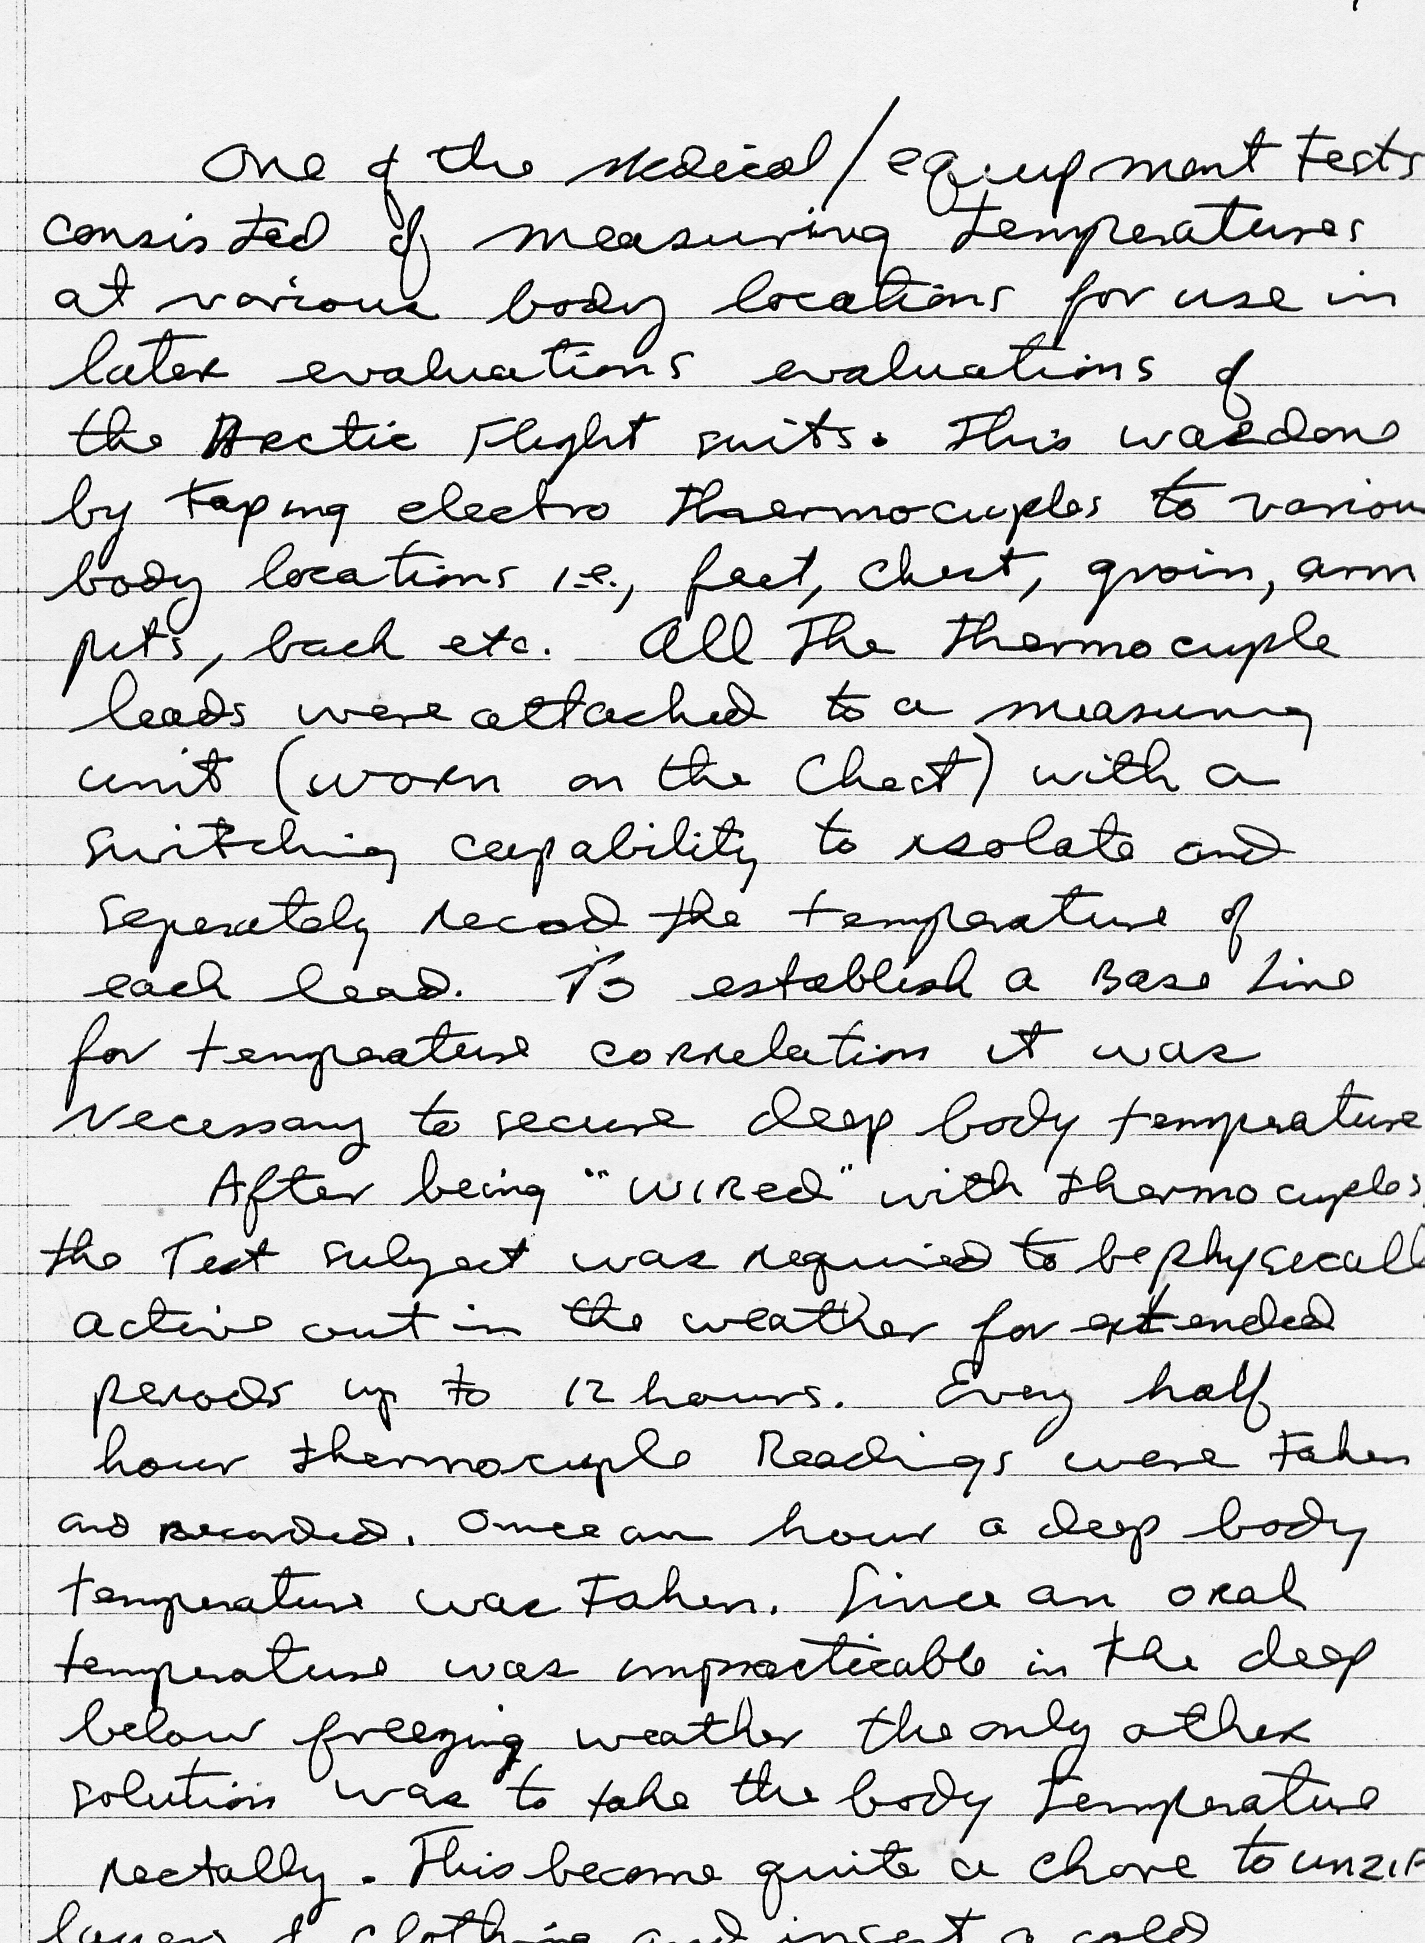 One of the Medical/equipment tests
consisted of measuring temperatures
at various body locations for use in
later evaluations evaluations of
the Arctic Flight suits. This was done
by taping electro thermocuples to variou
body locations i.e., feet, chest, groin, arm
pits, back etc. All the thermocuple
leads were attached to a measuring
unit (worn on the Chest) with a
switching capability to isolate and
seperately record the temperature of
each lead. To establish a Base Line
for temperature correlation it was
necessary to secure deep body temperature
After being "wired" with thermocuples
the Test subject was required to be physically
active out in the weather for extended
periods up to 12 hours. Every half
hour thermocuple Readings were taken
and recorded. Once an hour a deep body
temperature was taken. Since an oral
temperature was impracticable in the deep
below freezing weather the only other
solution was to take the body temperature
rectally. This became quite a chore to unzip
layers of clothing and insert a cold